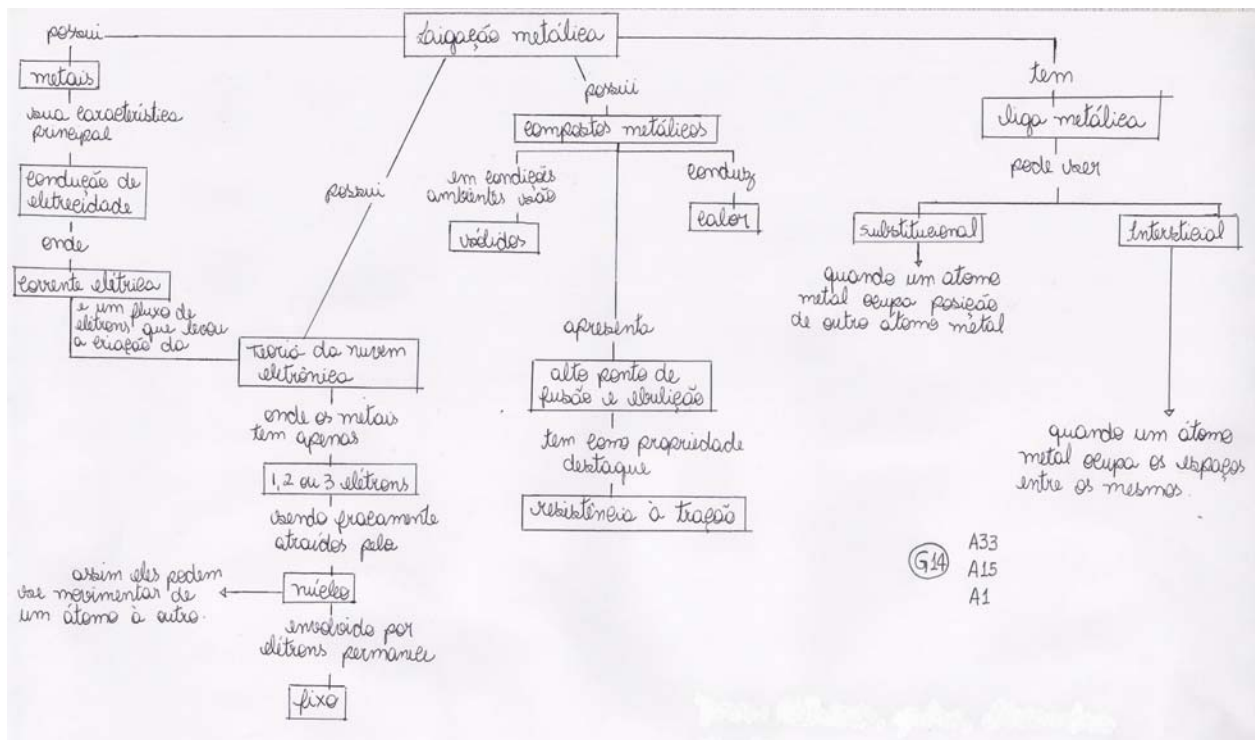 Ligação metálica
possui
metais
sua característica
principal
condução de
eletrecidade
onde
corrente elétrica
e um fluxo de
elétrons que levou
a criação da
possui
teoria da nuvem
eletrônica
onde os metais
tem apenas
1, 2 ou 3 elétrons
sendo fracamente
atraídos pelo
núcleo
assim eles podem
se movimentar de
um átomo à outro.
envolvido por
elétrons permanece
fixo
possui
compostos metálicos
em condições
ambientes são
sólidos
conduz
calor
apresenta
alto ponto de
fusão e ebulição
tem como propriedade
destaque
resistência à tração
tem
liga metálica
pode ser
substitucional
quando um átomo
metal ocupa posição
de outro átomo metal
Intersticial
quando um átomo
metal ocupa os espaços
entre os mesmos.
G14
A33
A15
A1